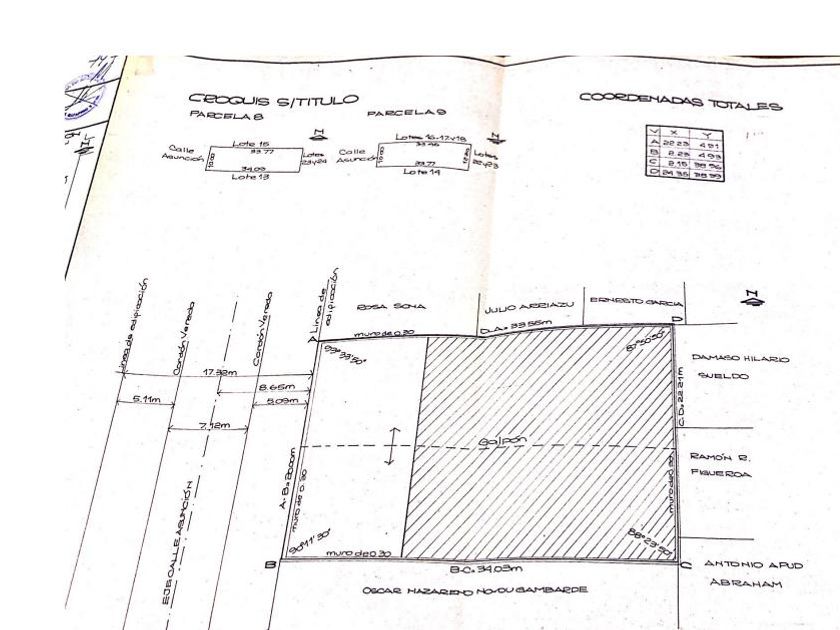 CROQUIS S/TITULO
PARCELA 8
PARCELA 9
COORDENADAS TOTALES
Lote 15
33.77
Calle
Asunción
Lotes
23y24
34.03
Lote 13
N
Lotes 16-17y18
33.46
Calle
Asunción
Lotes
22y23
33.77
Lote 14
N
V X Y
A 22.23 4.91
B 2.23 4.93
C 2.15 38.96
D 24.35 38.39
Linea de edificación
Cordón Vereda
Cordón Vereda
Linea de
edificación
ROSA SOHA
JULIO ARRIAZU
ERNESTO GARCIA
N
muro de 0.30
D.A.= 33.56m
A
D
99°33'50"
87°50'50"
17.32m
8.65m
5.11m
5.09m
7.12m
DAMASO HILARIO
SUELDO
C.D.= 22.21m
Galpón
A-B= 20.00m
muro de 0.30
muro de 0.30
RAMÓN R.
FIGUEROA
EJE CALLE ASUNCIÓN
90°11'30"
88°23'50"
muro de 0.30
B
C
B-C. 34.03m
ANTONIO APUD
ABRAHAM
OSCAR NAZARENO NOVOU GAMBARDE